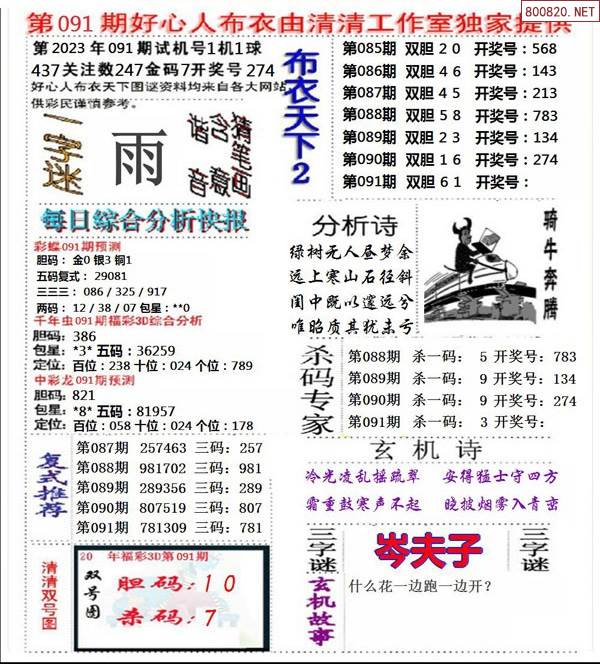 800820.NET
第091期好心人布衣由清清工作室独家提供
第2023年091期试机号1机1球
437关注数247金码7开奖号274
好心人布衣天下图谜资料均来自各大网站,
供彩民谨慎参考。
一字谜
雨
谐音
含意
猜笔画
每日综合分析快报
彩蝶091期预测
胆码: 金0 银3 铜1
五码复式: 29081
三三三: 086 / 325 / 917
两码: 12 / 38 / 07 包星: **0
千年虫091期福彩3D综合分析
胆码: 386
包星: *3* 五码: 36259
定位: 百位: 238 十位: 024 个位: 789
中彩龙091期预测
胆码: 821
包星: *8* 五码: 81957
定位: 百位: 058 十位: 024 个位: 178
复式推荐
第087期 257463 三码: 257
第088期 981702 三码: 981
第089期 289356 三码: 289
第090期 807519 三码: 807
第091期 781309 三码: 781
清清双号图
20 年福彩3D第091期
双号图
胆码: 10
杀码: 7
布衣天下2
第085期 双胆 20 开奖号: 568
第086期 双胆 46 开奖号: 143
第087期 双胆 45 开奖号: 213
第088期 双胆 58 开奖号: 783
第089期 双胆 23 开奖号: 134
第090期 双胆 16 开奖号: 274
第091期 双胆 61 开奖号:
分析诗
绿树无人昼梦余
远上寒山石径斜
闺中既以邃远兮
唯昭质其犹未亏
骑牛奔腾
杀码专家
第088期 杀一码: 5 开奖号: 783
第089期 杀一码: 9 开奖号: 134
第090期 杀一码: 9 开奖号: 274
第091期 杀一码: 3 开奖号:
玄机诗
冷光凌乱摇疏翠 安得猛士守四方
霜重鼓寒声不起 晓披烟雾入青峦
三字谜
岑夫子
三字谜
玄机故事
什么花一边跑一边开?